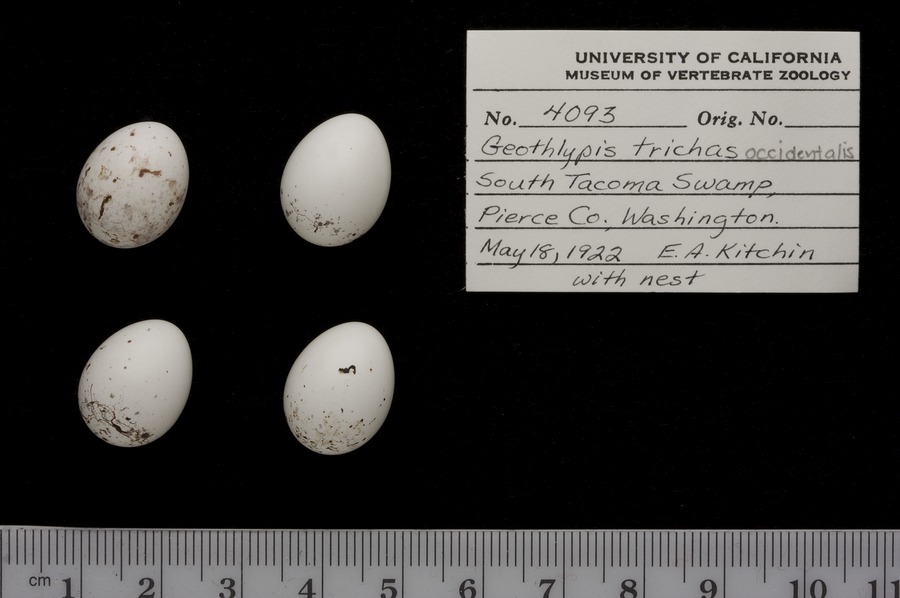 UNIVERSITY OF CALIFORNIA
MUSEUM OF VERTEBRATE ZOOLOGY
No. 4093 Orig. No.
Geothlypis trichas occidentalis
South Tacoma Swamp,
Pierce Co., Washington.
May 18, 1922 E. A. Kitchin
with nest
cm 1 2 3 4 5 6 7 8 9 10 11